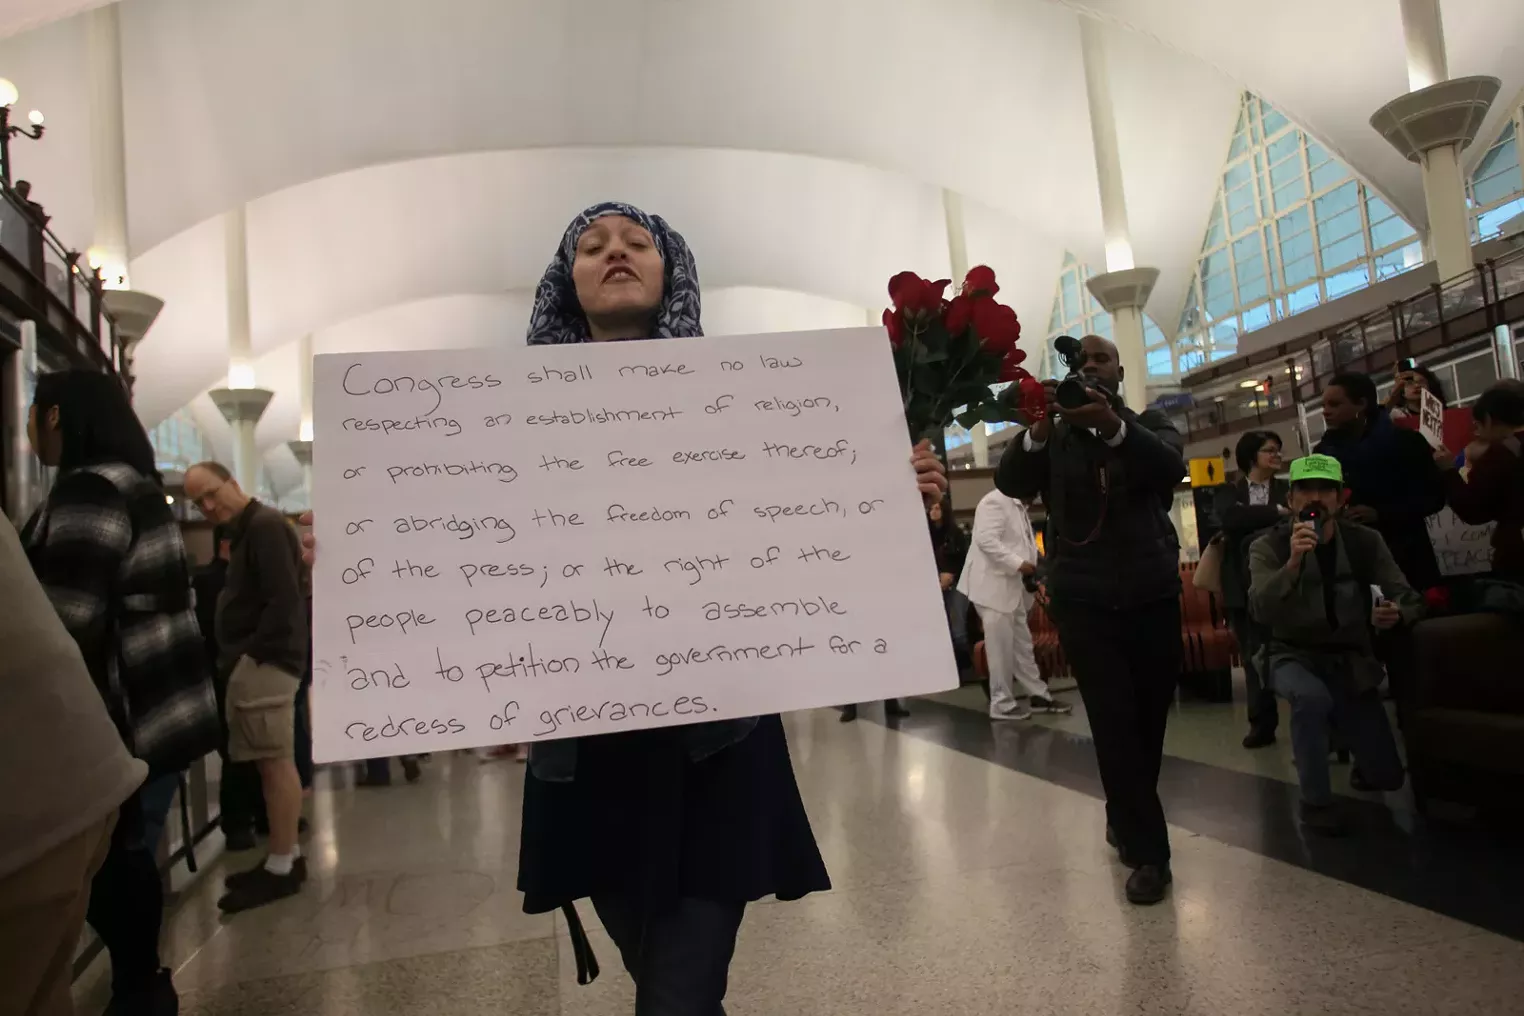 Congress shall make no law
respecting an establishment of religion,
or prohibiting the free exercise thereof;
or abridging the freedom of speech, or
of the press; or the right of the
people peaceably to assemble
and to petition the government for a
redress of grievances.